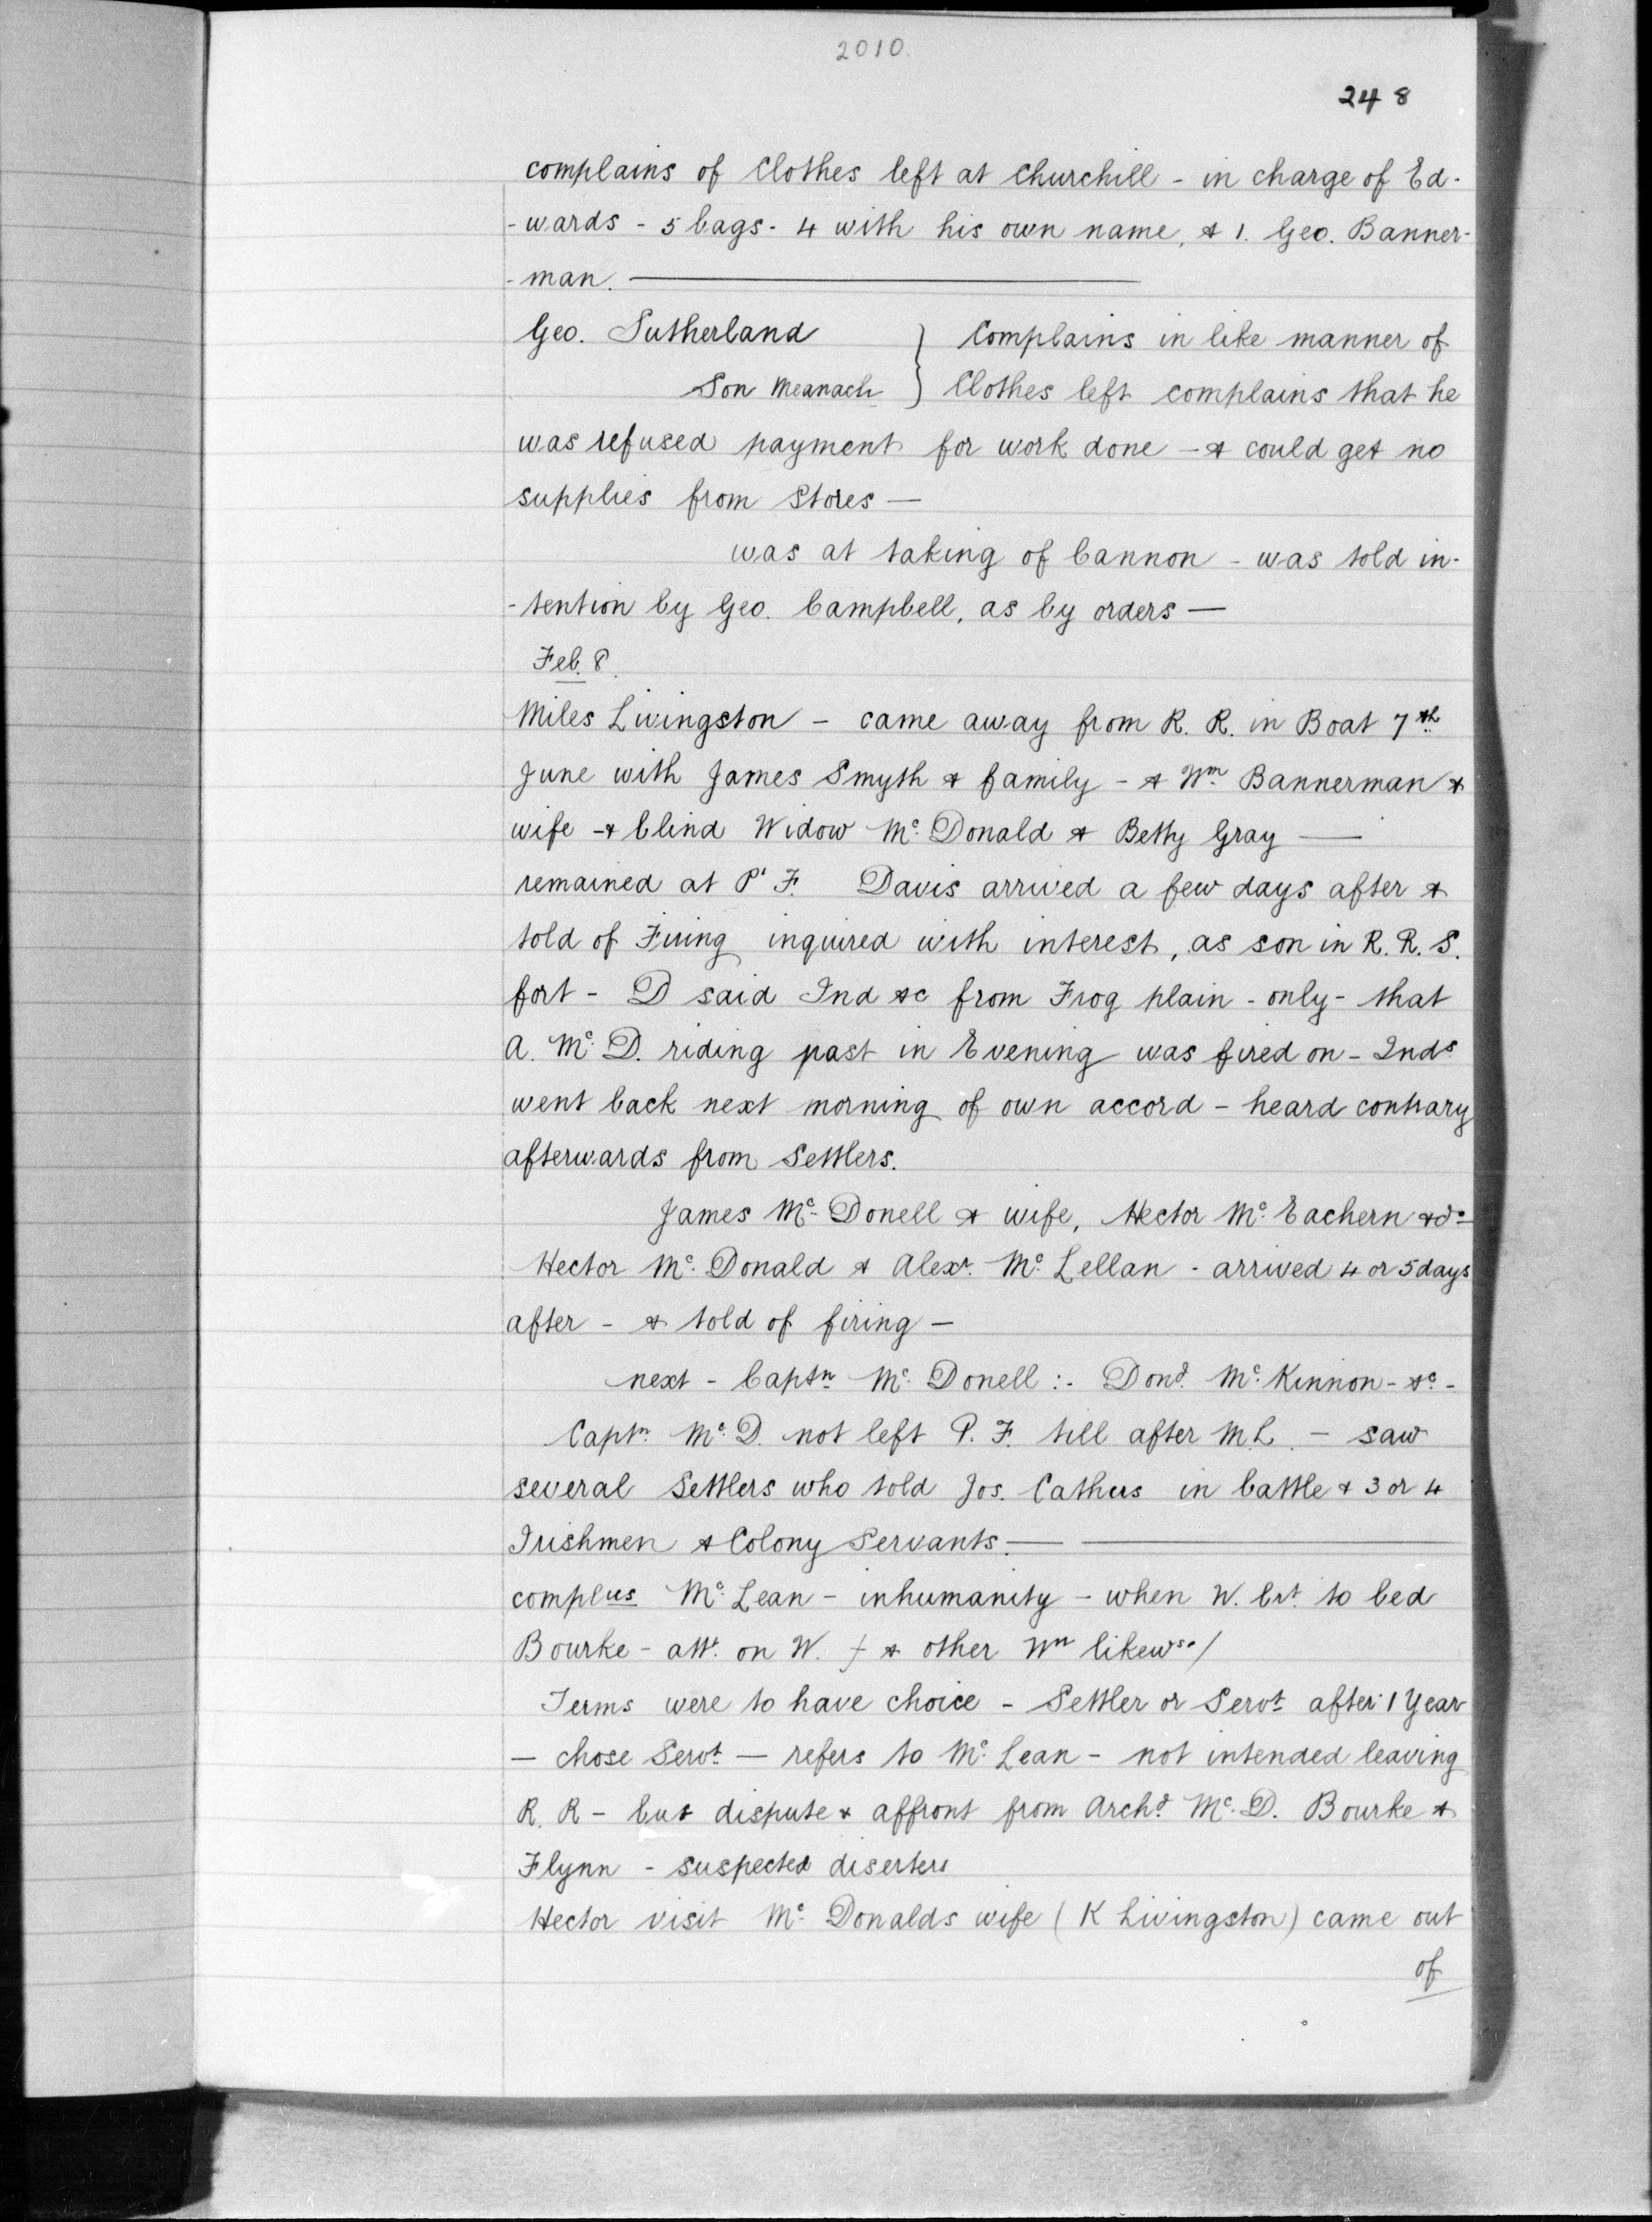 2010.
248
complains of Clothes left at Churchill - in charge of Ed-
-wards - 5 bags - 4 with his own name, & 1. Geo. Banner-
-man.
Geo. Sutherland } Complains in like manner of
Son Meanach } Clothes left complains that he
was refused payment for work done - & could get no
supplies from Stores -
was at taking of Cannon - was told in-
-tention by Geo. Campbell, as by orders -
Feb. 8.
Miles Livingston - came away from R. R. in Boat 7th
June with James Smyth & family - & Wm Bannerman &
wife - & blind Widow Mc Donald & Betty Gray -
remained at P. F. Davis arrived a few days after &
told of Firing inquired with interest, as son in R. R. S.
fort - D said Ind &c from Frog plain - only - that
A. Mc D. riding past in Evening was fired on - Inds
went back next morning of own accord - heard contrary
afterwards from Settlers.
James Mc Donell & wife, Hector Mc Eachern & do
Hector Mc Donald & Alexr. Mc Lellan - arrived 4 or 5 days
after - & told of firing -
next - Captn Mc Donell :- Dond. Mc Kinnon - &c -
Captn Mc D. not left P. F. till after M. L. - saw
several Settlers who told Jos. Cathus in battle & 3 or 4
Irishmen & Colony Servants. -
complus Mc Lean - inhumanity - when W. brt. to bed
Bourke - att. on W. / & other Wn likewse /
Terms were to have choice - Settler or Servt after 1 Year
- chose Servt - refers to Mc Lean - not intended leaving
R. R - but dispute & affront from Archd Mc D. Bourke &
Flynn - suspected diserters
Hector visit Mc Donalds wife (K Livingston) came out
of